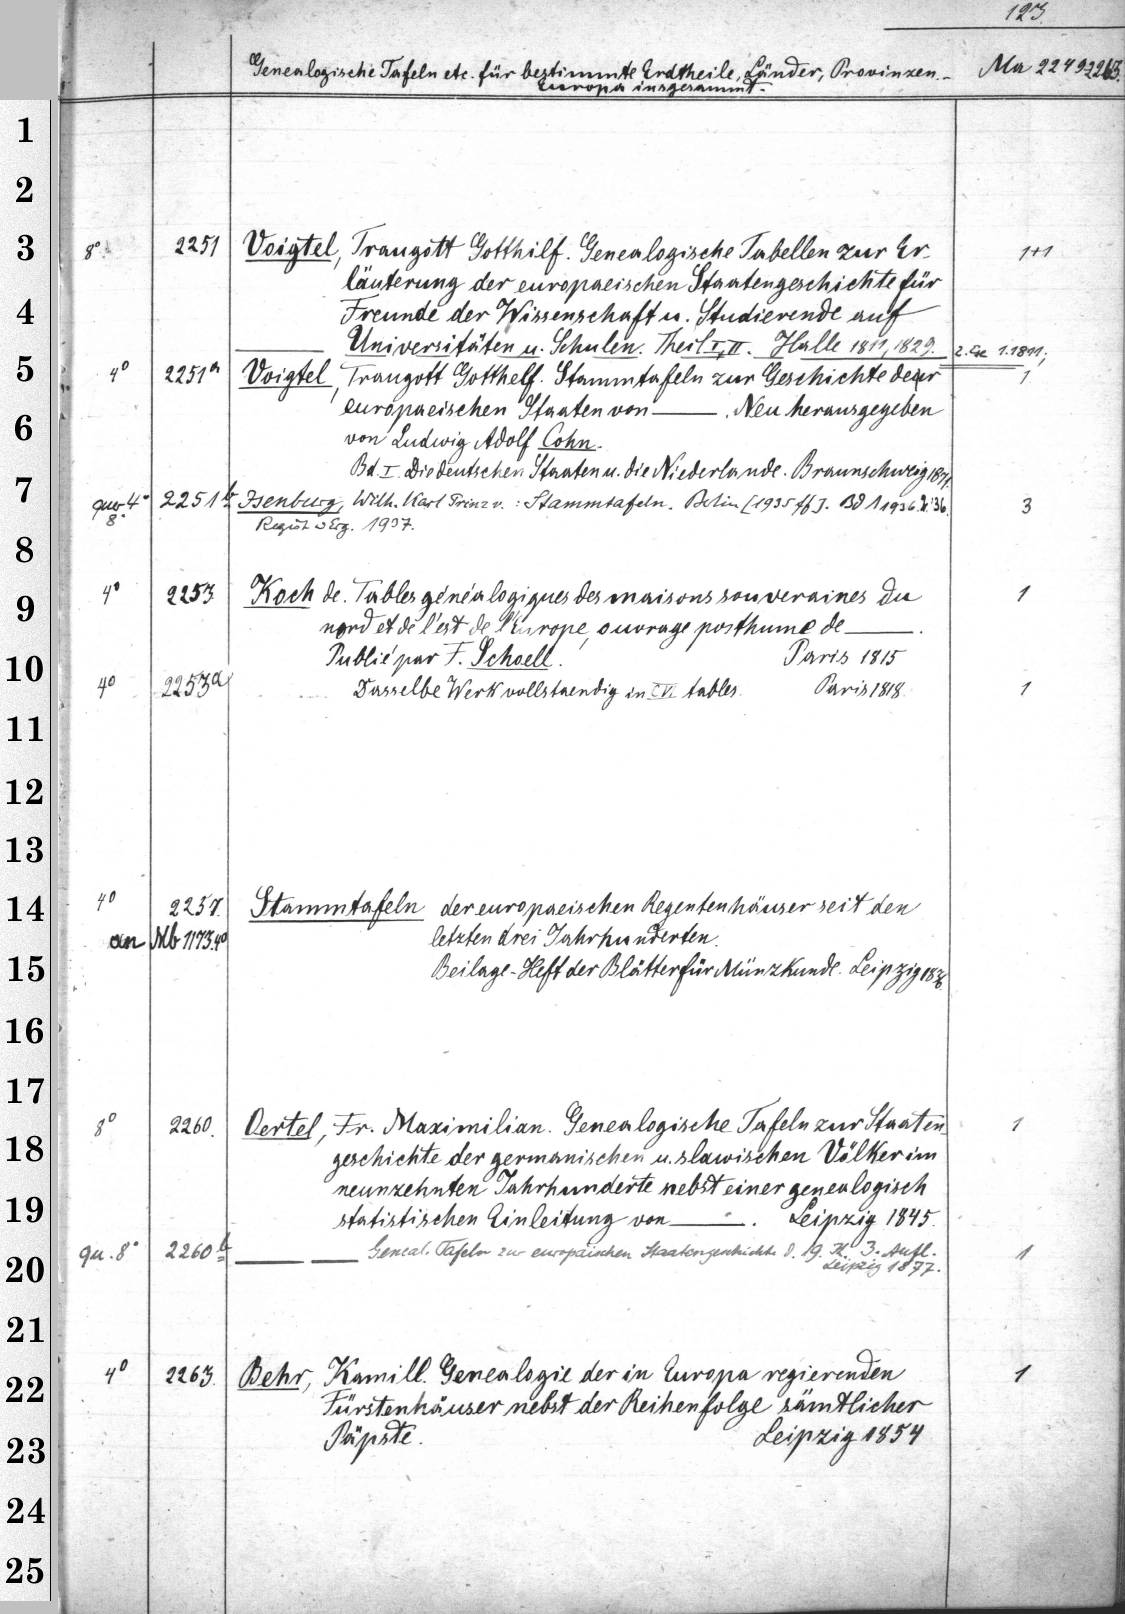 123.
Genealogische Tafeln etc. für bestimmte Erdtheile, Länder, Provinzen.- Ma 2249
Europa insgesammt.-
1
2
3 8° 2251 Voigtel, Traugott Gotthilf. Genealogische Tabellen zur Er- 1+1
läuterung der europaeischen Staatengeschichte für
4 Freunde der Wissenschaft u. Studierende auf
Universitäten u. Schulen. Theil I, II. Halle 1811, 1829. 2. Ex 1.1811;
5 4° 2251a Voigtel, Traugott Gotthelf. Stammtafeln zur Geschichte der 1
europaeischen Staaten von ——. Neu herausgegeben
6 von Ludwig Adolf Cohn.
Bd. I. Die deutschen Staaten u. die Niederlande. Braunschweig 1871.
7 quer 4° 2251b Isenburg, Wilh. Karl Prinz v. : Stammtafeln. Berlin [1935 ff]. Bd 1 1936. 2:36. 3
8. Regist u Erg. 1937.
8
9 4° 2253 Koch de. Tables généalogiques des maisons souveraines du 1
nord et de l'est de l'Europe, ouvrage posthume de ——.
10 Publié par F. Schoell. Paris 1815
4° 2253a Dasselbe Werk vollstaendig in CVI tables. Paris 1818. 1
11
12
13
14 4° 2257. Stammtafeln der europaeischen Regentenhäuser seit den
an Mb 1173.4° letzten drei Jahrhunderten.
15 Beilage-Heft der Blätter für Münzkunde. Leipzig
16
17
8° 2260. Oertel, Fr. Maximilian. Genealogische Tafeln zur Staaten- 1
18 geschichte der germanischen u. slawischen Völker im
neunzehnten Jahrhunderte nebst einer genealogisch
19 statistischen Einleitung von ——. Leipzig 1845.
qu. 8° 2260b —— —— Geneal. Tafeln zur europäischen Staatengeschichte d. 19. Jh. 3. Aufl. 1
20 Leipzig 1877.
21
22 4° 2263. Behr, Kamill. Genealogie der in Europa regierenden 1
Fürstenhäuser nebst der Reihenfolge sämtlicher
23 Päpste. Leipzig 1854
24
25